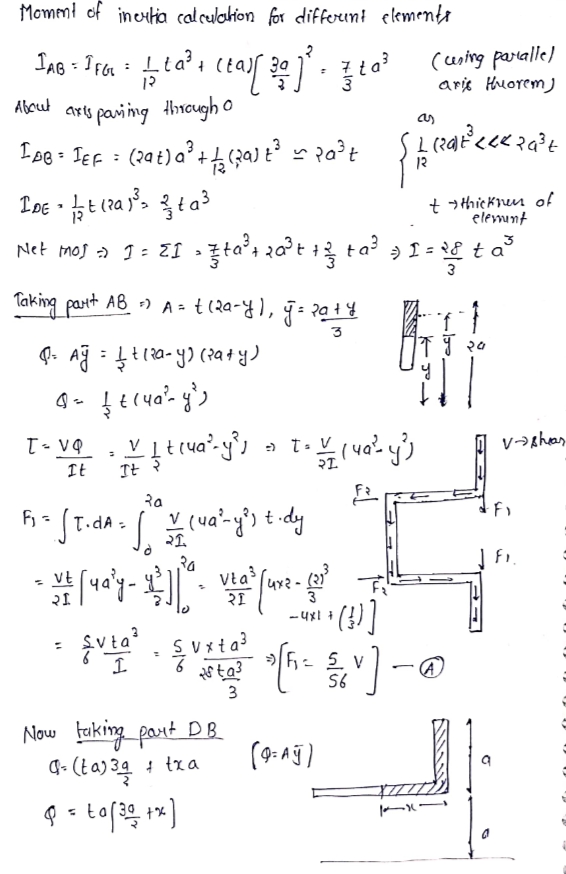 Moment of inertia calculation for different elements
I_AB = I_FG = 1/12 ta³ + (ta)[3a/2]² = 7/3 ta³ (using parallel axis theorem)
About axis passing through O
I_DB = I_EF = (2at)a³ + 1/12 (2a)t³ ≃ 2a³t { as 1/12 (2a)t³ <<< 2a³t
I_DE = 1/12 t(2a)³ = 2/3 ta³ t → thickness of element
Net MOI ⇒ I = ΣI = 7/3 ta³ + 2a³t + 2/3 ta³ ⇒ I = 28/3 ta³
Taking part AB ⇒ A = t(2a-y), ȳ = 2a+y/3
Q = Aȳ = 1/2 t(2a-y)(2a+y)
Q = 1/2 t(4a²-y²)
y ȳ 2a
τ = VQ/It = V/It 1/2 t(4a²-y²) ⇒ τ = V/2I (4a²-y²)
V → shear
F₂
F₁
F₁ = ∫τ.dA = ∫₀^2a V/2I (4a²-y²) t.dy
F₁
F₂
= Vt/2I [4a²y - y³/3]|₀^2a = Vta³/2I [4x2 - (2)³/3 - 4x1 + (1/3)]
= 5/6 Vta³/I = 5/6 V x ta³/(28ta³/3) ⇒ [F₁ = 5/56 V] — Ⓐ
Now taking part DB
[Q = Aȳ]
Q = (ta)3a/2 + txa
Q = ta[3a/2 + x]
x
a
a